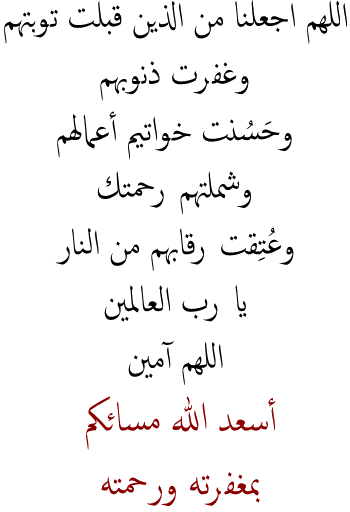 اللهم اجعلنا من الذين قبلت توبتهم
وغفرت ذنوبهم
وحَسُنت خواتيم أعمالهم
وشملتهم رحمتك
وعُتِقت رقابهم من النار
يا رب العالمين
اللهم آمين
أسعد الله مسائكم
بمغفرته ورحمته